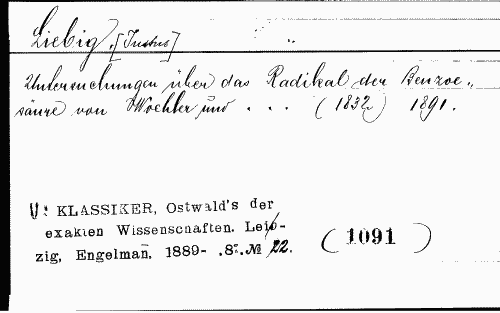 Liebig, [Justus]
Untersuchungen über das Radikal der Benzoe-
säure von Woehler und . . . (1832) 1891.
V: KLASSIKER, Ostwald's der
exakten Wissenschaften. Leip-
zig, Engelman̄. 1889- .8º. № 22.
(1091)